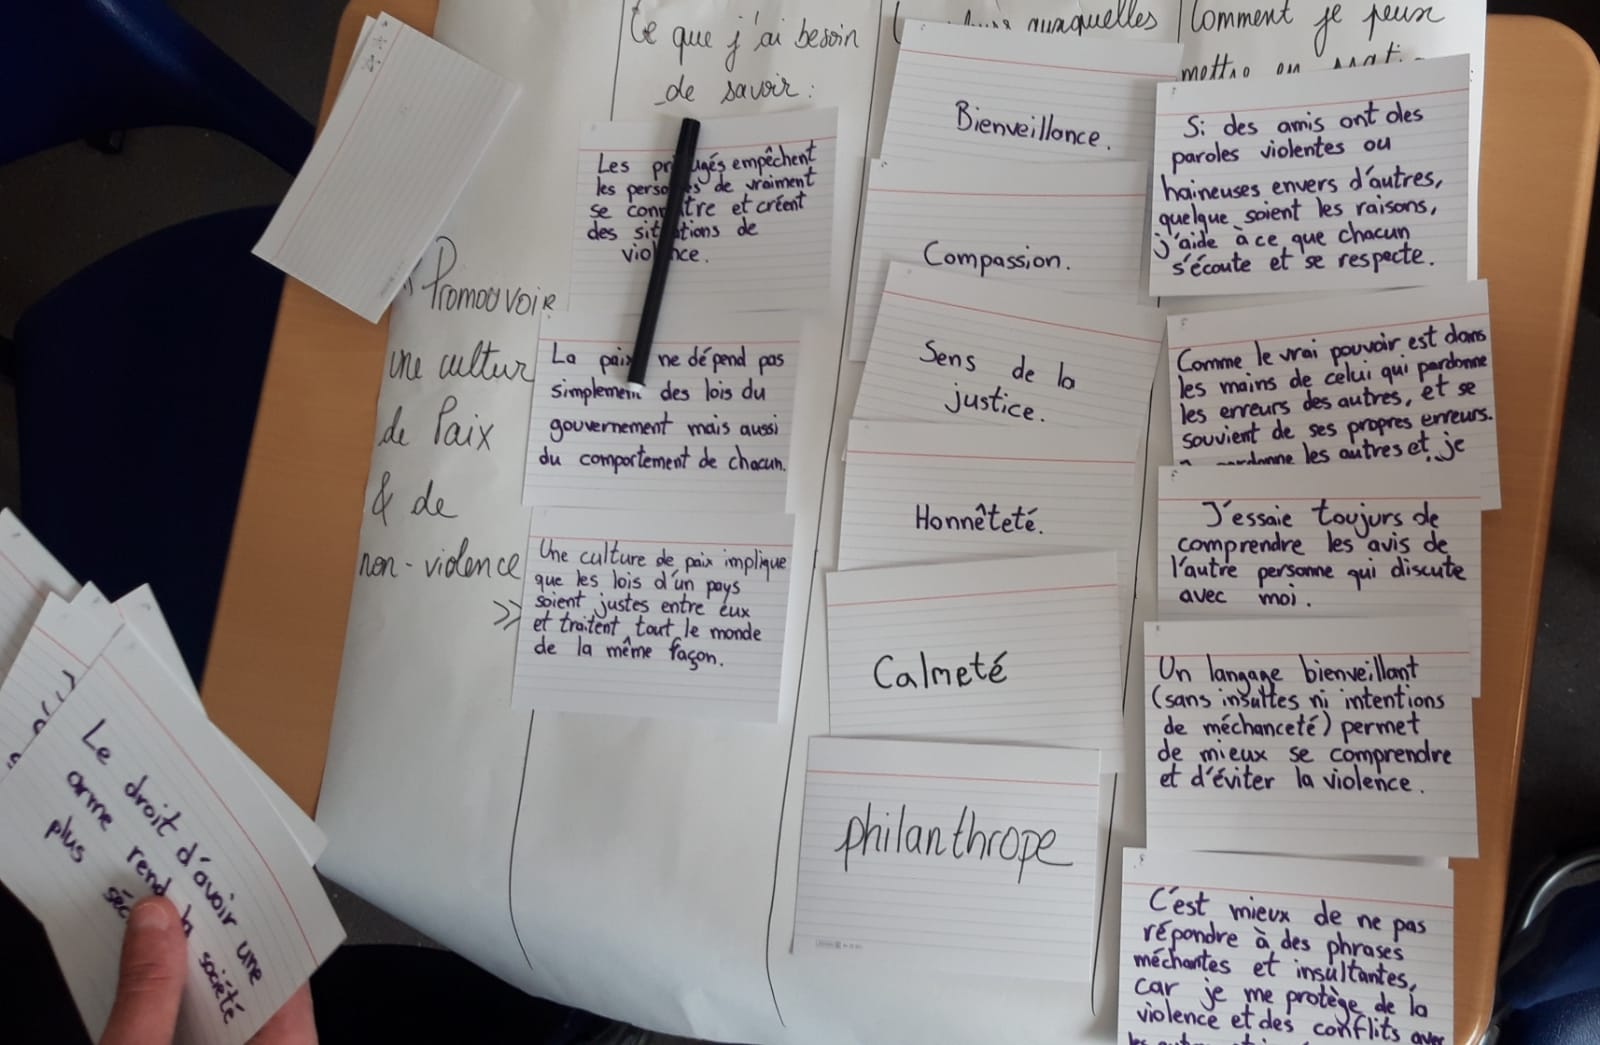 Ce que j'ai besoin
de savoir :
auxquelles
Comment je peux
mettre en
« Promouvoir
une cultur
de Paix
& de
non-violence
»
Les empêchent
les de vraiment
se et créent
des de
La paix ne dépend pas
simplement des lois du
gouvernement mais aussi
du comportement de chacun.
Une culture de paix implique
que les lois d'un pays
soient justes entre eux
et traitent tout le monde
de la même façon.
Bienveillance.
Compassion.
Sens de la
justice.
Honnêteté.
Calmeté
philanthrope
Si des amis ont des
paroles violentes ou
haineuses envers d'autres,
quelque soient les raisons,
j'aide à ce que chacun
s'écoute et se respecte.
Comme le vrai pouvoir est dans
les mains de celui qui pardonne
les erreurs des autres, et se
souvient de ses propres erreurs.
pardonne les autres et je
J'essaie toujurs de
comprendre les avis de
l'autre personne qui discute
avec moi.
Un langage bienveillant
(sans insultes ni intentions
de méchanceté) permet
de mieux se comprendre
et d'éviter la violence.
C'est mieux de ne pas
répondre à des phrases
méchantes et insultantes,
car je me protège de la
violence et des conflits avec
Le droit d'avoir une
arme rend la société
plus